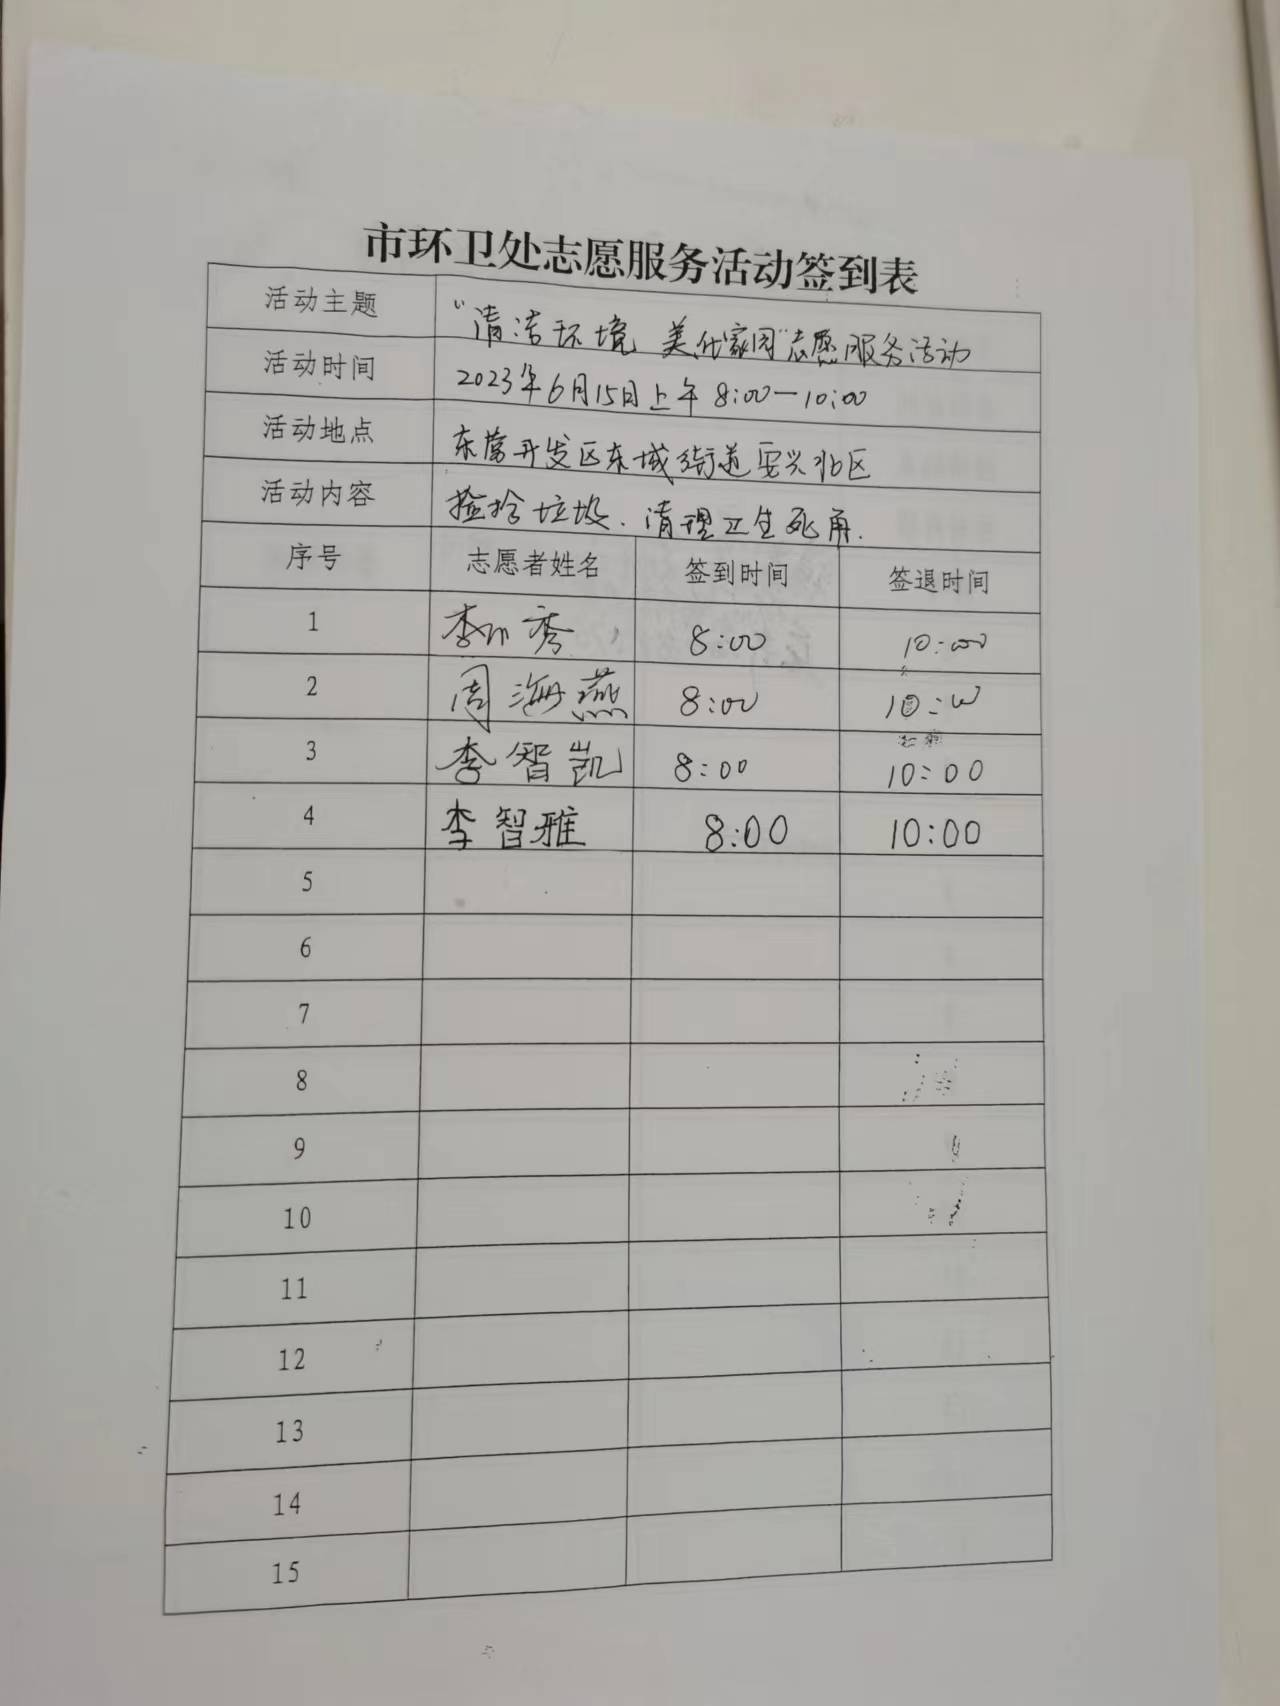 市环卫处志愿服务活动签到表
活动主题 "清洁环境 美化家园"志愿服务活动
活动时间 2023年6月15日上午8:00—10:00
活动地点 东营开发区东城街道安兴北区
活动内容 捡拾垃圾、清理卫生死角.
序号 志愿者姓名 签到时间 签退时间
1 李 秀 8:00 10:00
2 周海燕 8:00 10:00
3 李智凯 8:00 10:00
4 李智雅 8:00 10:00
5
6
7
8
9
10
11
12
13
14
15